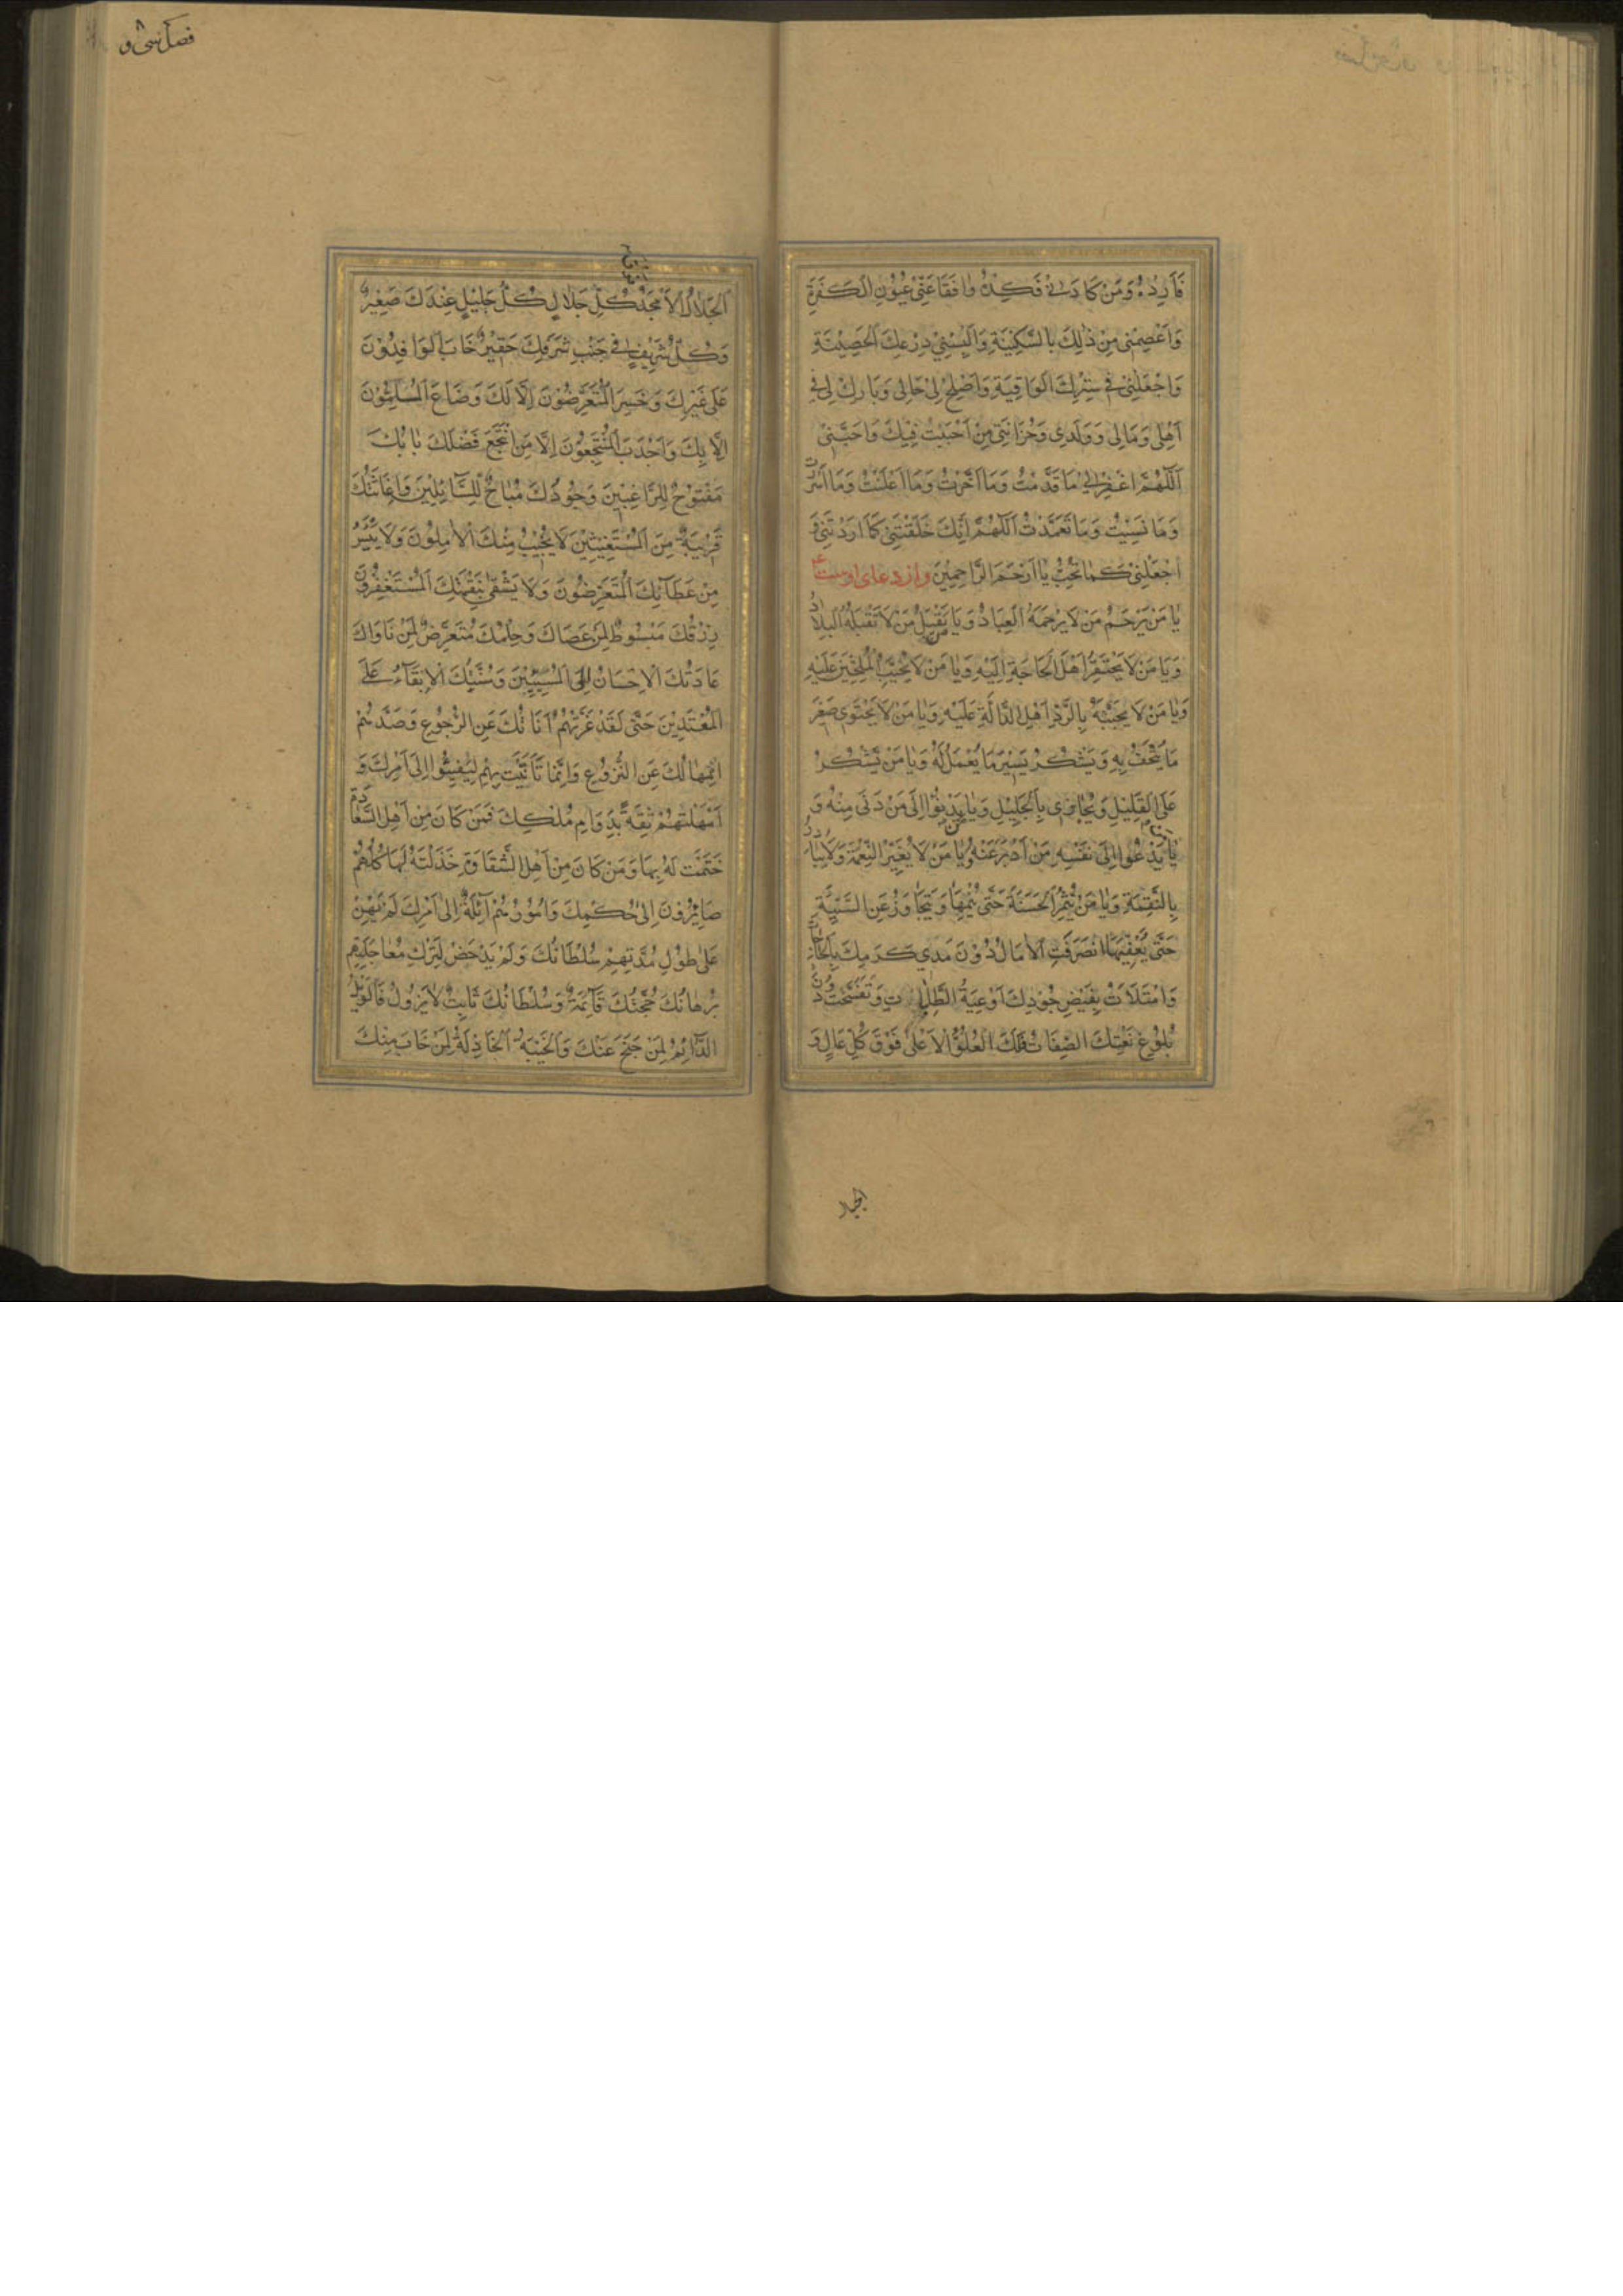 فَاَرِدْهُ وَمَنْ كَادَنِيْ فَكِدْهُ وَافْقَاْعَنِّيْ عُيُوْنَ الْكَفَرَةِ
وَاعْصِمْنِيْ مِنْ ذٰلِكَ بِالسَّكِيْنَةِ وَاَلْبِسْنِيْ دِرْعَكَ الْحَصِيْنَةَ
وَاجْعَلْنِيْ فِيْ سِتْرِكَ الْوَاقِيَةِ وَاَصْلِحْ لِيْ حَالِيْ وَبَارِكْ لِيْ فِيْ
اَهْلِيْ وَمَالِيْ وَوَلَدِيْ وَحُزَانَتِيْ مِنْ اَحْبَبْتُ فِيْكَ وَاحَبَّنِيْ
اَللّٰهُمَّ اغْفِرْ لِيْ مَا قَدَّمْتُ وَمَا اَخَّرْتُ وَمَا اَعْلَنْتُ وَمَا اَسْرَرْتُ
وَمَا نَسِيْتُ وَمَا تَعَمَّدْتُ اَللّٰهُمَّ اِنَّكَ خَلَقْتَنِيْ كَمَا اَرَدْتَنِيْ فَ
اجْعَلْنِيْ كَمَا تُحِبُّ يَا اَرْحَمَ الرَّاحِمِيْنَ وازدعای اوست
يَا مَنْ يَرْحَمُ مَنْ لَا يَرْحَمُهُ الْعِبَادُ وَيَا يَقْبَلُ مَنْ لَا تَقْبَلُهُ الْبِلَادُ
وَيَا مَنْ لَا يَحْتَقِرُ اَهْلَ الْحَاجَةِ اِلَيْهِ وَيَا مَنْ لَا يُخَيِّبُ الْمُلِحِّيْنَ عَلَيْهِ
وَيَا مَنْ لَا يَجْبَهُ بِالرَّدِّ اَهْلَ الدَّالَّةِ عَلَيْهِ وَيَا مَنْ لَا يَجْتَوِيْ صِغَرَ
مَا يُتْحَفُ بِهِ وَيَشْكُرُ يَسِيْرَ مَا يُعْمَلُ لَهُ وَيَا مَنْ يَشْكُرُ
عَلَى الْقَلِيْلِ وَيُجَازِيْ بِالْجَلِيْلِ وَيَا يَدْنُوْا اِلَى مَنْ دَنَى مِنْهُ وَ
يَا يَدْعُوْا اِلَى نَفْسِهِ مَنْ اَدْبَرَ عَنْهُ وَيَا مَنْ لَا يُغَيِّرُ النِّعْمَةَ وَلَا يُبَادِرُ
بِالنَّقِمَةِ وَيَا مَنْ يُثْمِرُ الْحَسَنَةَ حَتّٰى يُنْمِيَهَا وَيَتَجَاوَزُ عَنِ السَّيِّئَةِ
حَتّٰى يُعَفِّيَهَا انْصَرَفَتِ الْاٰمَالُ دُوْنَ مَدٰى كَرَمِكَ بِالْحَاجَاتِ
وَامْتَلَاَتْ بِفَيْضِ جُوْدِكَ اَوْعِيَةُ الطَّلِبَاتِ وَتَفَسَّخَتْ دُوْنَ
بُلُوْغِ نَعْتِكَ الصِّفَاتُ فَلَكَ الْعُلُوُّ الْاَعْلٰى فَوْقَ كُلِّ عَالٍ وَ
الجلال
اَلْجَلَالُ الْاَمْجَدُ كُلِّ جَلَالٍ كُلُّ جَلِيْلٍ عِنْدَكَ صَغِيْرٌ
وَكُلُّ شَرِيْفٍ فِيْ جَنْبِ شَرَفِكَ حَقِيْرٌ خَابَ الْوَافِدُوْنَ
عَلٰى غَيْرِكَ وَخَسِرَ الْمُتَعَرِّضُوْنَ اِلَّا لَكَ وَضَاعَ الْمُلِمُّوْنَ
اِلَّا بِكَ وَاَجْدَبَ الْمُنْتَجِعُوْنَ اِلَّا مَنِ انْتَجَعَ فَضْلَكَ بَابُكَ
مَفْتُوْحٌ لِلرَّاغِبِيْنَ وَجُوْدُكَ مُبَاحٌ لِلسَّائِلِيْنَ وَاِغَاثَتُكَ
قَرِيْبَةٌ مِنَ الْمُسْتَغِيْثِيْنَ لَا يَخِيْبُ مِنْكَ الْاٰمِلُوْنَ وَلَا يَيْئَسُ
مِنْ عَطَائِكَ الْمُتَعَرِّضُوْنَ وَلَا يَشْقٰى بِنَقِمَتِكَ الْمُسْتَغْفِرُوْنَ
رِزْقُكَ مَبْسُوْطٌ لِمَنْ عَصَاكَ وَحِلْمُكَ مُتَعَرِّضٌ لِمَنْ نَاوَاكَ
عَادَتُكَ الْاِحْسَانُ اِلَى الْمُسِيْئِيْنَ وَسُنَّتُكَ الْاِبْقَاءُ عَلَى
الْمُعْتَدِيْنَ حَتّٰى لَقَدْ غَرَّتْهُمْ اَنَاتُكَ عَنِ الرُّجُوْعِ وَصَدَّهُمْ
اِمْهَالُكَ عَنِ النُّزُوْعِ وَاِنَّمَا تَاَنَّيْتَ بِهِمْ لِيَفِيْئُوْا اِلٰى اَمْرِكَ وَ
اَمْهَلْتَهُمْ ثِقَةً بِدَوَامِ مُلْكِكَ فَمَنْ كَانَ مِنْ اَهْلِ السَّعَادَةِ
خَتَمْتَ لَهُ بِهَا وَمَنْ كَانَ مِنْ اَهْلِ الشَّقَاوَةِ خَذَلْتَهُ لَهَا كُلُّهُمْ
صَائِرُوْنَ اِلٰى حُكْمِكَ وَاُمُوْرُهُمْ اٰئِلَةٌ اِلٰى اَمْرِكَ لَمْ يَهِنْ
عَلٰى طُوْلِ مُدَّتِهِمْ سُلْطَانُكَ وَلَمْ يَدْحَضْ لِتَرْكِ مُعَاجَلَتِهِمْ
بُرْهَانُكَ حُجَّتُكَ قَائِمَةٌ وَسُلْطَانُكَ ثَابِتٌ لَا يَزُوْلُ فَالْوَيْلُ
الدَّائِمُ لِمَنْ جَنَحَ عَنْكَ وَالْخَيْبَةُ الْخَاذِلَةُ لِمَنْ خَابَ مِنْكَ